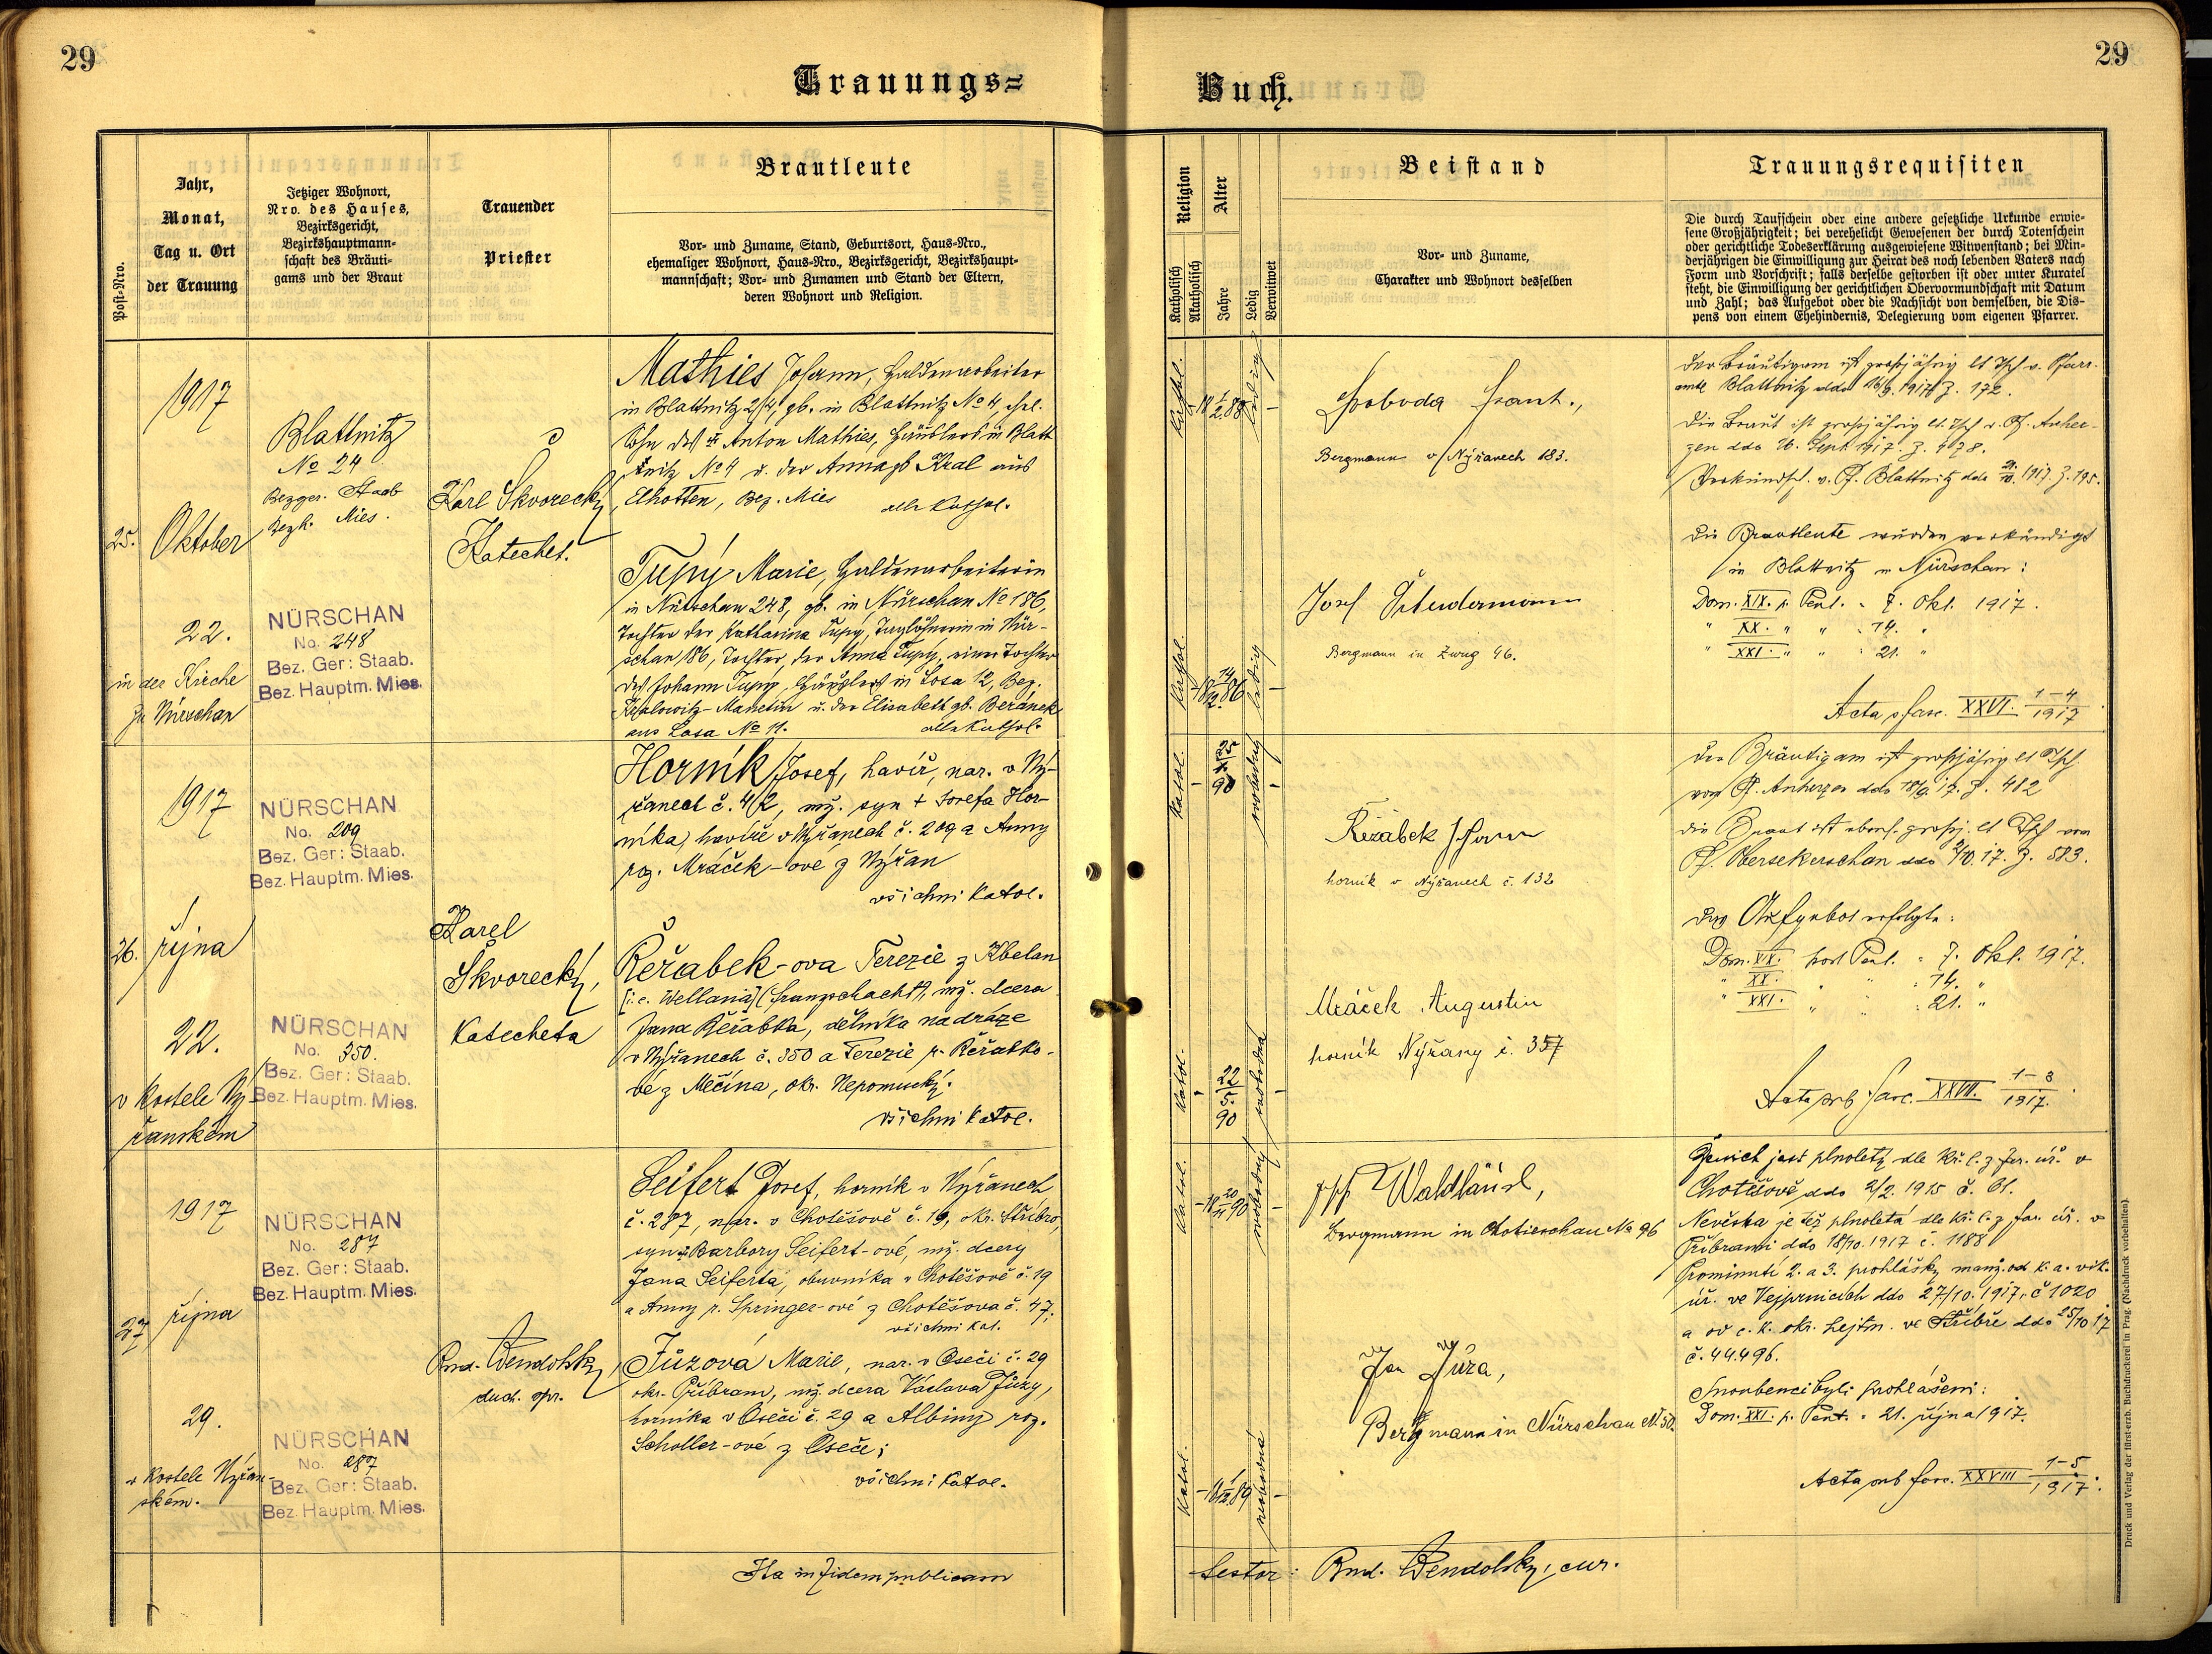 29
29
Trauungs=
Buch.
Post-Nro.
Jahr,
Monat,
Tag u. Ort
der Trauung
Jetziger Wohnort,
Nro. des Hauses,
Bezirksgericht,
Bezirkshauptmann-
schaft des Bräuti-
gams und der Braut
Trauender
Priester
Brautleute
Vor- und Zuname, Stand, Geburtsort, Haus-Nro.,
ehemaliger Wohnort, Haus-Nro., Bezirksgericht, Bezirkshaupt-
mannschaft; Vor- und Zunamen und Stand der Eltern,
deren Wohnort und Religion.
Religion
Katholisch
Akatholisch
Alter
Jahre
Ledig
Verwitwet
Beistand
Vor- und Zuname,
Charakter und Wohnort desselben
Trauungsrequisiten
Die durch Taufschein oder eine andere gesetzliche Urkunde erwie-
sene Großjährigkeit; bei verehelicht Gewesenen der durch Totenschein
oder gerichtliche Todeserklärung ausgewiesene Witwenstand; bei Min-
derjährigen die Einwilligung zur Heirat des noch lebenden Vaters nach
Form und Vorschrift; falls derselbe gestorben ist oder unter Kuratel
steht, die Einwilligung der gerichtlichen Obervormundschaft mit Datum
und Zahl; das Aufgebot oder die Nachsicht von demselben, die Dis-
pens von einem Ehehindernis, Delegierung vom eigenen Pfarrer.
25.
1917
Oktober
22.
in der Kirche
zu Nürschan
Blattnitz
No 24
Bezger. Staab
Bezh. Mies.
NÜRSCHAN
No. 248
Bez. Ger: Staab.
Bez. Hauptm. Mies.
Karl Škvorecký,
Katechet.
Mathies Johann, Haldenarbeiter
in Blattnitz 24, gb. in Blattnitz No 4, ehel.
Sohn des † Anton Mathies, Häuslers in Blatt
nitz No 4 u. der Anna gb Kral aus
Elhotten, Bez. Mies
alle kathol.
Tupý Marie, Haldenarbeiterin
in Nürschan 248, gb. in Nürschan No 186,
Tochter der Katharina Tupý, Taglöhnerin in Nür-
schan 186, Tochter der Anna Tupý, einer Tochter
des Johann Tupý, Häuslers in Losa 12, Bez.
Kralowitz-Manetin u. der Elisabeth gb. Beránek
aus Losa No 11.
alle kathol.
Kathol.
ledig
Kathol.
ledig
Svoboda Frant.,
Bergmann v Nýřanech 183.
Josef
Bergmann in Zwug 46.
Der Bräutigam ist großjährig lt Tsch v. Pfarr-
amte Blattnitz ddo 16/9. 1917 Z. 172.
Die Braut ist großjährig lt. Tsch v. Pf. Anher-
zen ddo 26. Sept. 1917. Z. 478.
Verkündsch. v. Pf. Blattnitz ddo 21/10. 1917. Z. 195.
Die Brautleute wurden verkündigt
in Blattnitz u Nürschan:
Dom. XIX. p. Pent. = 7. Okt. 1917.
" XX. " " : 14. "
" XXI. " " : 21. "
Acta s fasc. XXVI. 1-4/1917
26.
1917
října
22.
v kostele Ný-
řanském
NÜRSCHAN
No. 209
Bez. Ger: Staab.
Bez. Hauptm. Mies.
NÜRSCHAN
No. 350.
Bez. Ger: Staab.
Bez. Hauptm. Mies.
Karel
Škvorecký,
Katecheta
Horník Josef, havíř, nar. v Ný-
řanech č. 42, mž. syn † Josefa Hor-
níka, havíře v Nýřanech č. 209 a Anny
roz. Mráček-ové z Nýřan
všichni katol.
Řeřabek-ova Terezie z Kbelan
[i.e. Wellana] (Franzschacht), mž. dcera
Jana Řeřabka, dělníka na dráze
v Nýřanech č. 350 a Terezie r. Řeřabko-
vé z Mečína, okr. Nepomucký.
všichni katol.
Katol.
25
90
svobodný
Katol.
22
5.
90
svobodná
Řežábek Johann
horník v Nýřanech č. 132
Mráček Augustin
horník Nýřany č. 357
Der Bräutigam ist großjährig lt Tsch
vom Pf. Anherzen ddo 18/9. 17. Z. 482
Die Braut ist ebenf. großj. lt Tsch von
Pf. Obersekerschan ddo 2/10. 17. Z. 583.
Das Aufgebot erfolgte:
Dom. XIX. post Pent. = 7. Okt. 1917.
" XX. " " : 14. "
" XXI. " " : 21. "
Acta sub fasc. XXVII. 1-3/1917.
27
1917
října
29.
v kostele Nýřan-
ském.
NÜRSCHAN
No. 287
Bez. Ger: Staab.
Bez. Hauptm. Mies.
NÜRSCHAN
No. 287
Bez. Ger: Staab.
Bez. Hauptm. Mies.
Rmd. Wendolský,
duch. spr.
Seifert Josef, horník v Nýřanech
č. 287, nar. v Chotěšově č. 19, okr. Stříbro,
syn Barbory Seifert-ové, mž. dcery
Jana Seiferta, obuvníka v Chotěšově č. 19
a Anny r. Springer-ové z Chotěšova č. 47;
všichni kat.
Jůzová Marie, nar. v Oseči č. 29
okr. Příbram, mž. dcera Václava Jůzy,
horníka v Oseči č. 29 a Albiny roz.
Scholler-ové z Oseče;
všichni katol.
Katol.
svobodný
Katol.
svobodná
Waldhäusl,
Bergmann in Chotieschau No 96
Jan Jůza,
Bergmann in Nürschan No 50.
Ženich jest plnoletý dle kř. l. z far. úř. v
Chotěšově ddo 2/2. 1915 č. 61.
Nevěsta je též plnoletá dle kř. l. z far. úř. v
Příbrami ddo 18/10. 1917 č. 1188
Prominutí 2. a 3. prohlášky manž. od k. a. vik.
úř. ve Vejprnicích ddo 27/10. 1917, č 1020
a od c. k. okr. hejtm. ve Stříbře ddo 25/10 17
č. 44.496.
Snoubenci byli prohlášeni:
Dom. XXI. p. Pent. = 21. října 1917.
Acta sub fasc. XXVIII 1-5/1917.
Ita in fidem publicam
testor: Rmd. Wendolský, cur.
Druck und Verlag der fürsterzb. Buchdruckerei in Prag. (Nachdruck vorbehalten).